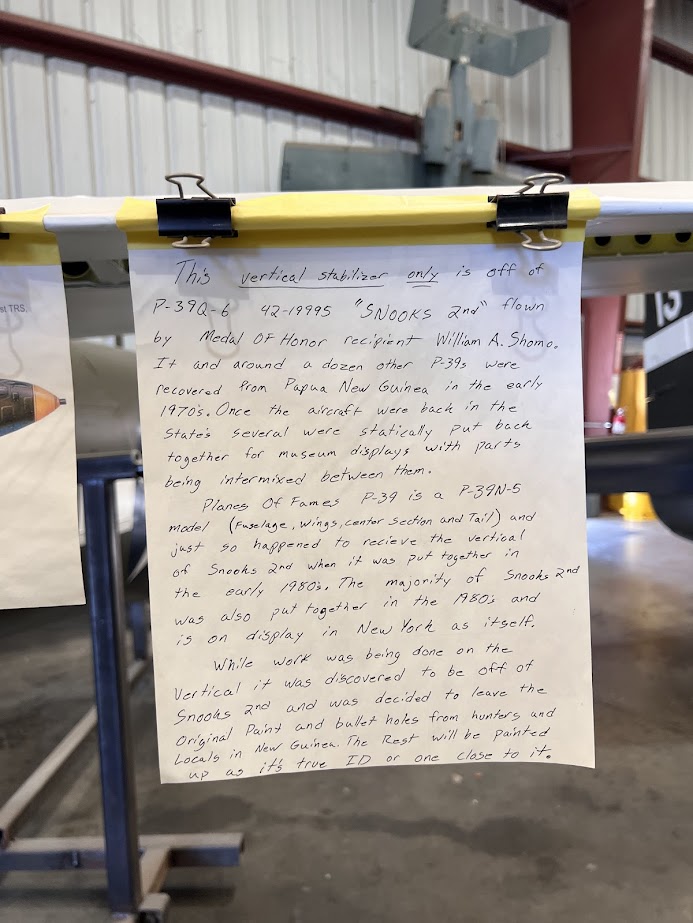 This vertical stabilizer only is off of
P-39Q-6 42-19995 "SNOOKS 2nd" flown
by Medal OF Honor recipient William A. Shomo.
It and around a dozen other P-39s were
recovered from Papua New Guinea in the early
1970's. Once the aircraft were back in the
State's several were statically put back
together for museum displays with parts
being intermixed between them.
Planes Of Fames P-39 is a P-39N-5
model (Fuselage, wings, center section and Tail) and
just so happened to recieve the vertical
of Snooks 2nd when it was put together in
the early 1980's. The majority of Snooks 2nd
was also put together in the 1980's and
is on display in New York as itself.
While work was being done on the
Vertical it was discovered to be off of
Snooks 2nd and was decided to leave the
Original Paint and bullet holes from hunters and
Locals in New Guinea. The Rest will be painted
up as it's true ID or one close to it.
st TRS,
13